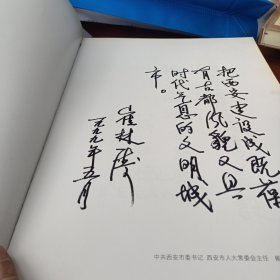 把西安建设成既葆
有古都风貌又具
时代气息的文明城
市。
崔林涛
一九九九年五月
中共西安市委书记 西安市人大常委会主任